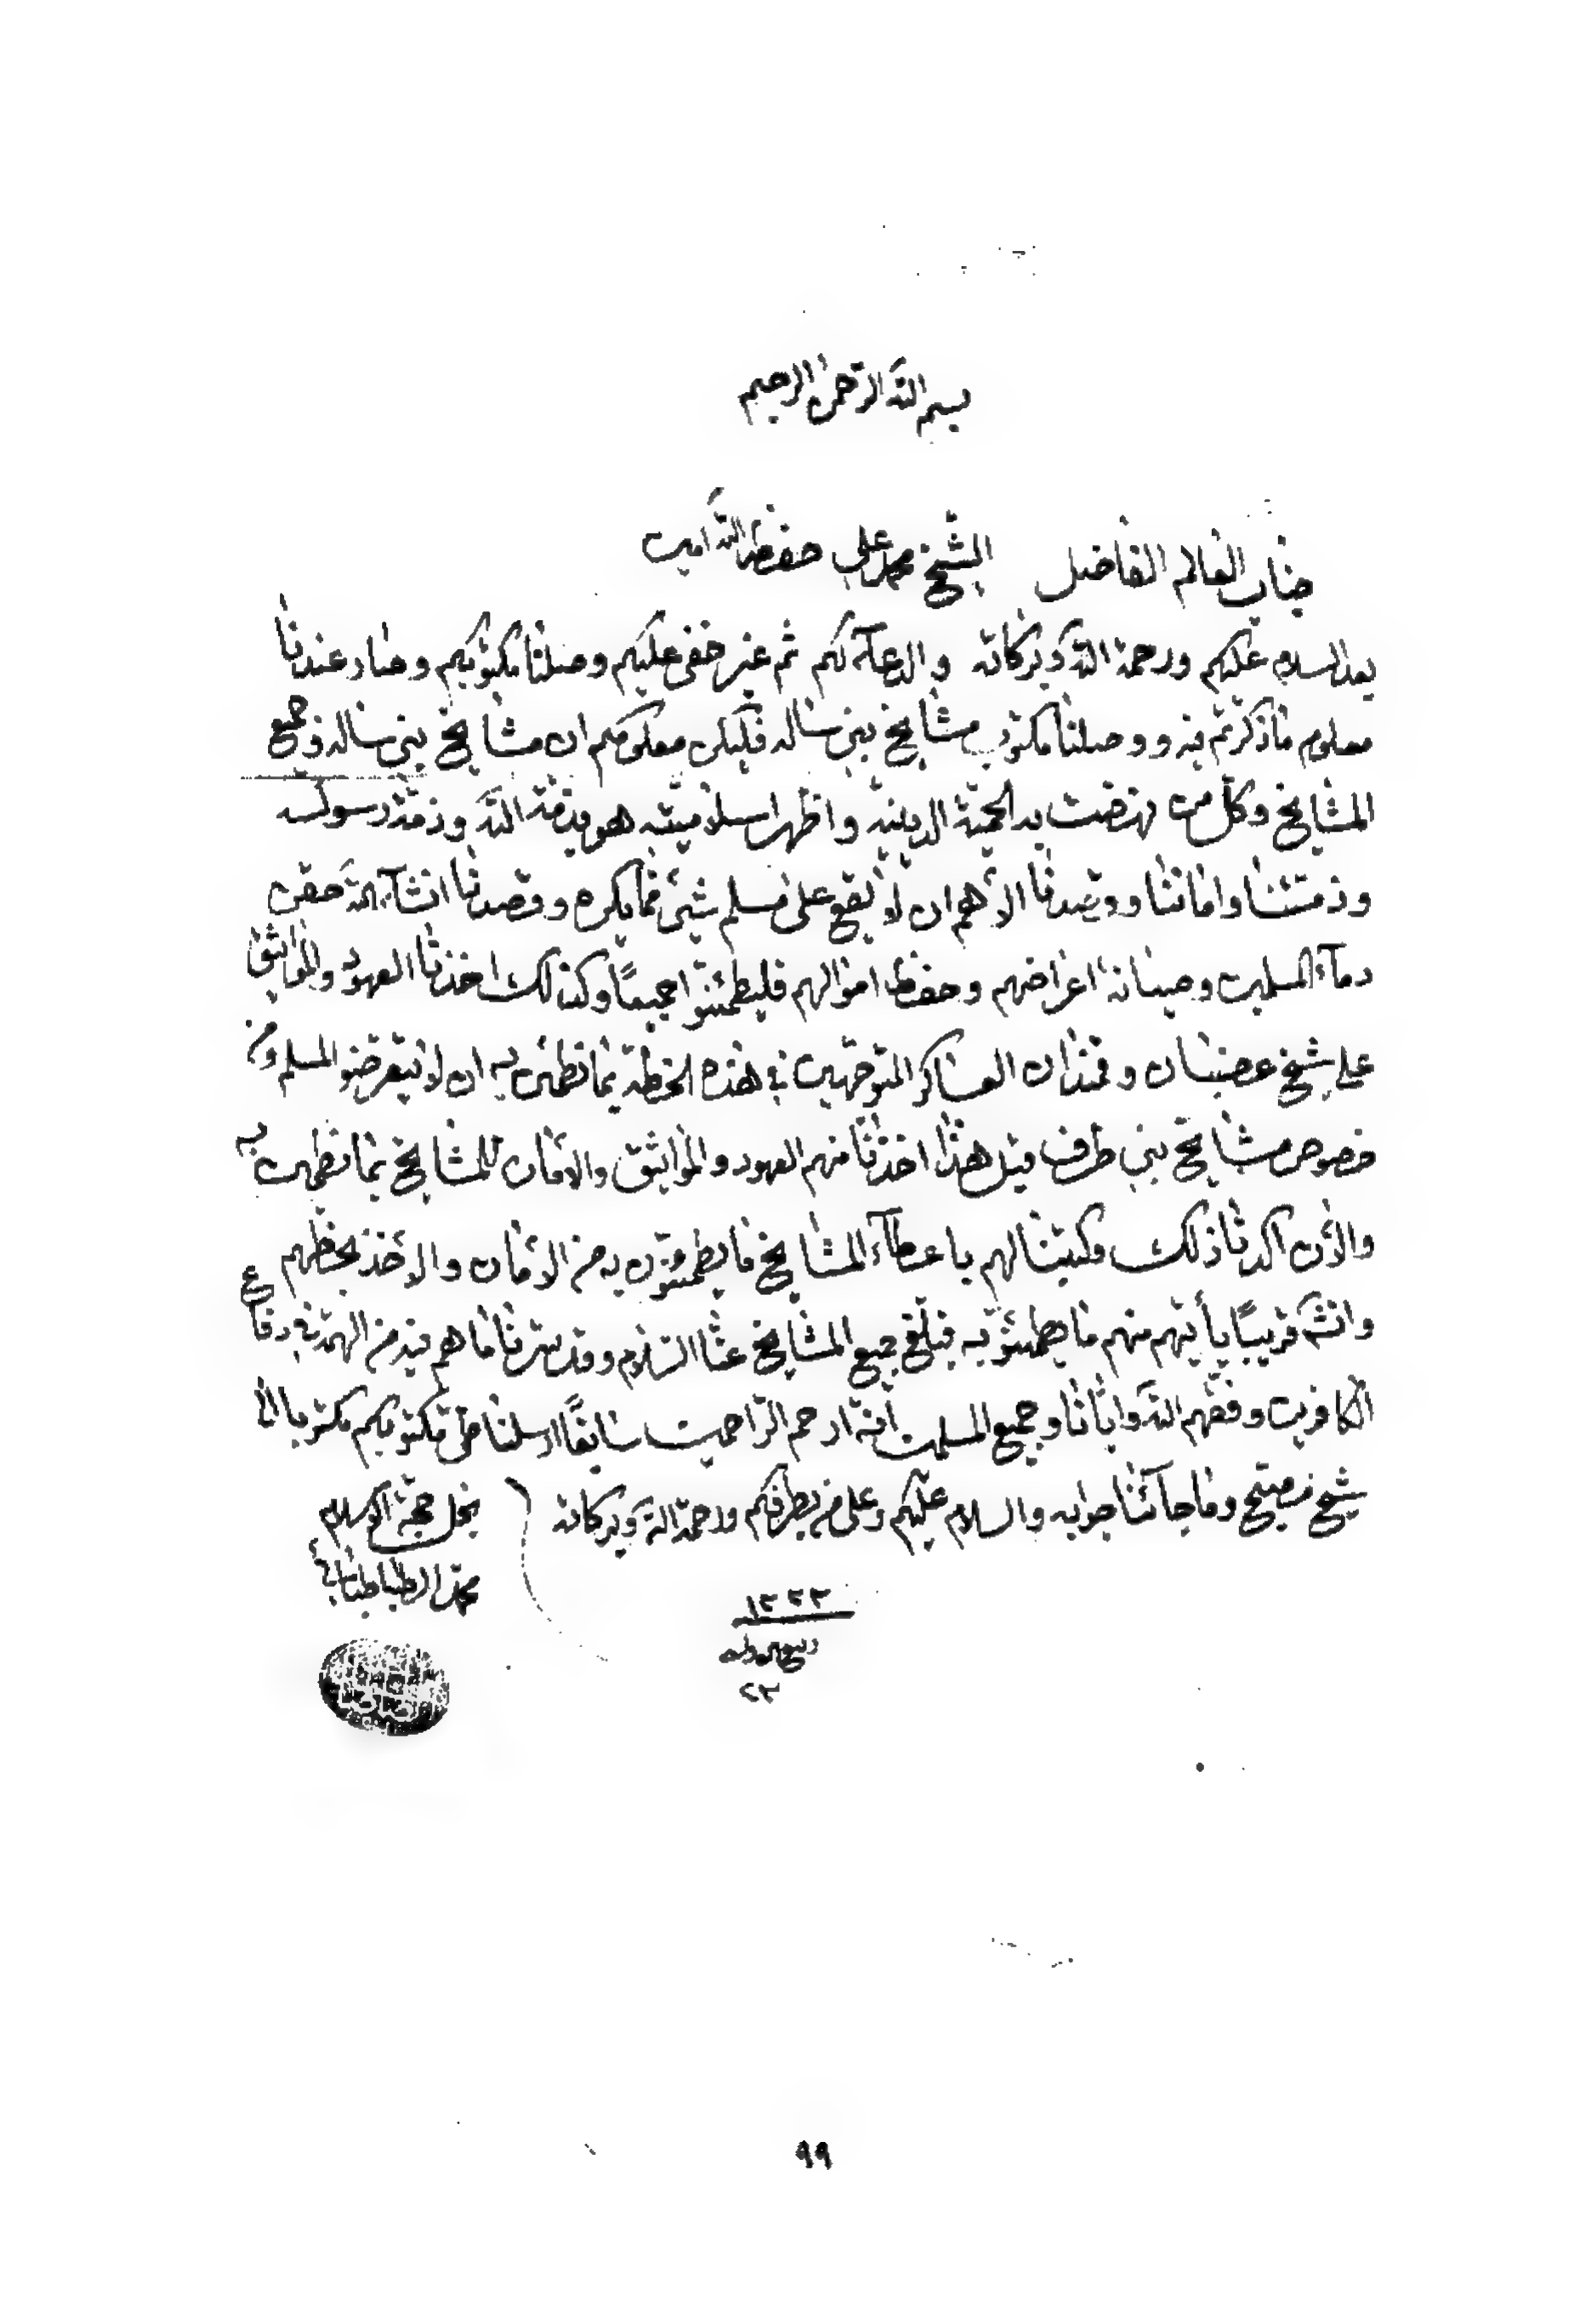 بسم الله الرحمن الرحيم
جناب العالم الفاضل الشيخ محمد علي حفظه الله امين
بعد السلام عليكم ورحمة الله وبركاته والدعاء لكم ثم غير خفي عليكم وصلنا مكتوبكم وصار عندنا
معلوم ما ذكرتم فيه ووصلنا مكتوب مشايخ بني ساله فليكن معلومكم ان مشايخ بني ساله وجميع
المشايخ وكل من نهضت به الحمية الدينية واظهر اسلاميته هو بذمة الله وذمة رسوله
وذمتنا واماننا وقصدنا الأهم ان لا يقع على مسلم شيئ مما يكره وقصدنا انشآء الله حقن
دمآء المسلمين وصيانة اعراضهم وحفظ اموالهم فليطمئنوا جميعاً وكذلك اخذنا العهود والمواثيق
على شيخ عضبان وقمندان العساكر المتوجهين في هذه الخطة بما نطمئن به ان لا يتعرضوا لمسلم ومن
خصوص مشايخ بني طرف قبل هذا اخذنا منهم العهود والمواثيق والأمان للمشايخ بما نطمئن به
والأن اكدنا ذلك وكتبنا لهم باعطآء المشايخ ما يطمئنون به من الأمان والأخذ بحظهم
وانشـ قريباً يأتيهم منهم ما يطمئنو به فبلغ جميع المشايخ عنا السلام وقد سرنا ما هم فيه من الهمة في دفاع
الكافرين وفقهم الله وايانا وجميع المسلمين انه ارحم الراحمين سابقاً ارسلنا طي مكتوبكم مكتوبا الى
شيخ مصبح وما جآئنا جوابه والسلام عليكم وعلى من بطرفكم ورحمة الله وبركاته
نجل حجة الاسلام
محمد الطباطبائي
١٣٣٣
ربيع
٢٣
٩٩